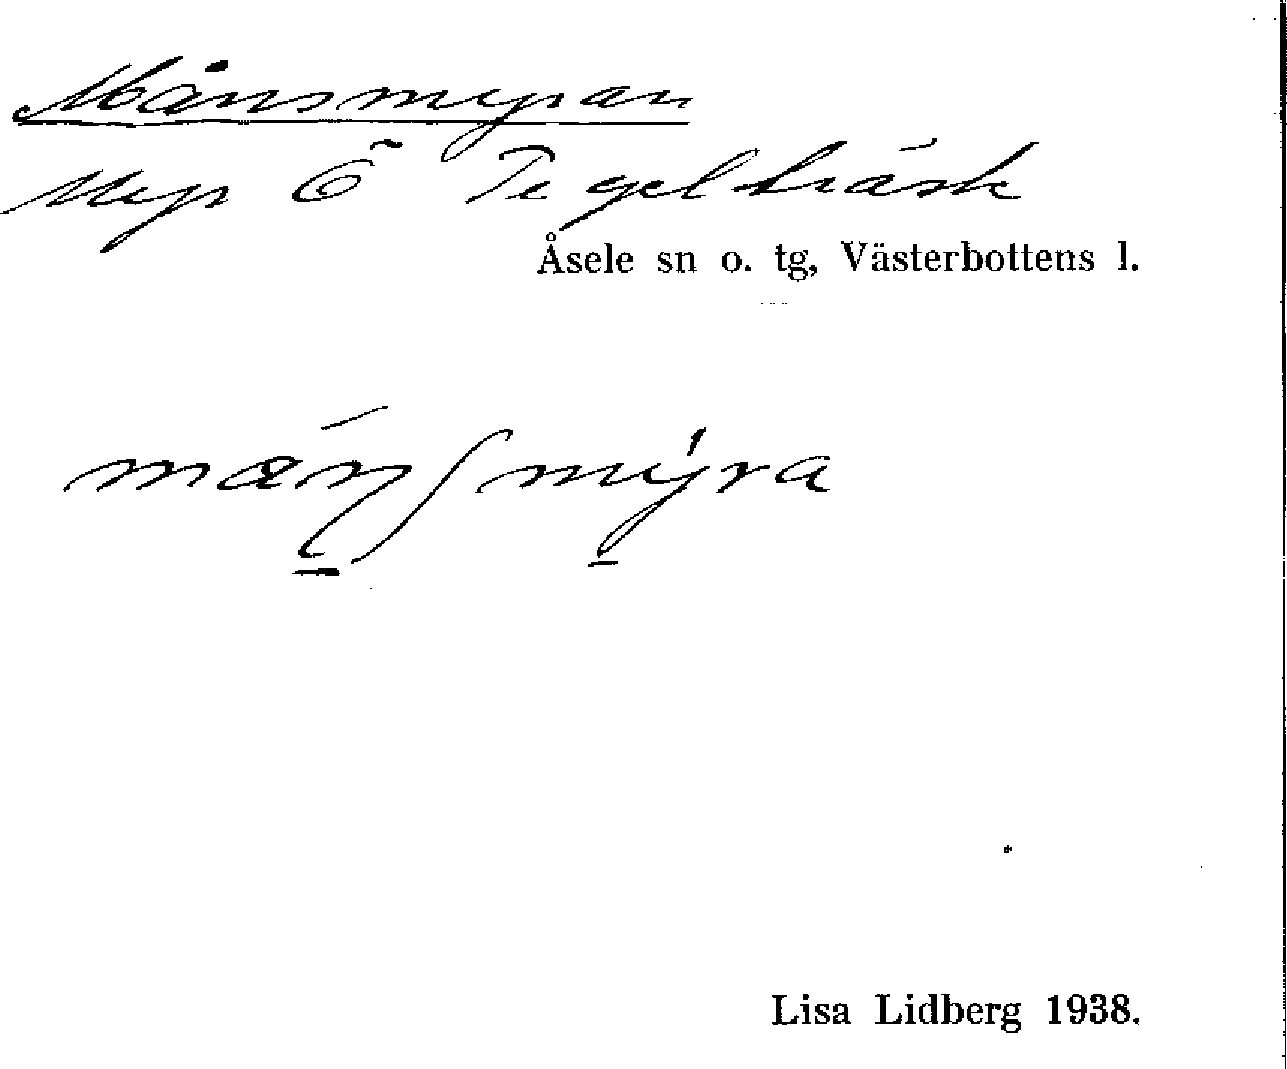 Månsmyran
Myr Ö Tegelträsk
Åsele sn o. tg, Västerbottens l.
Lisa Lidberg 1938.